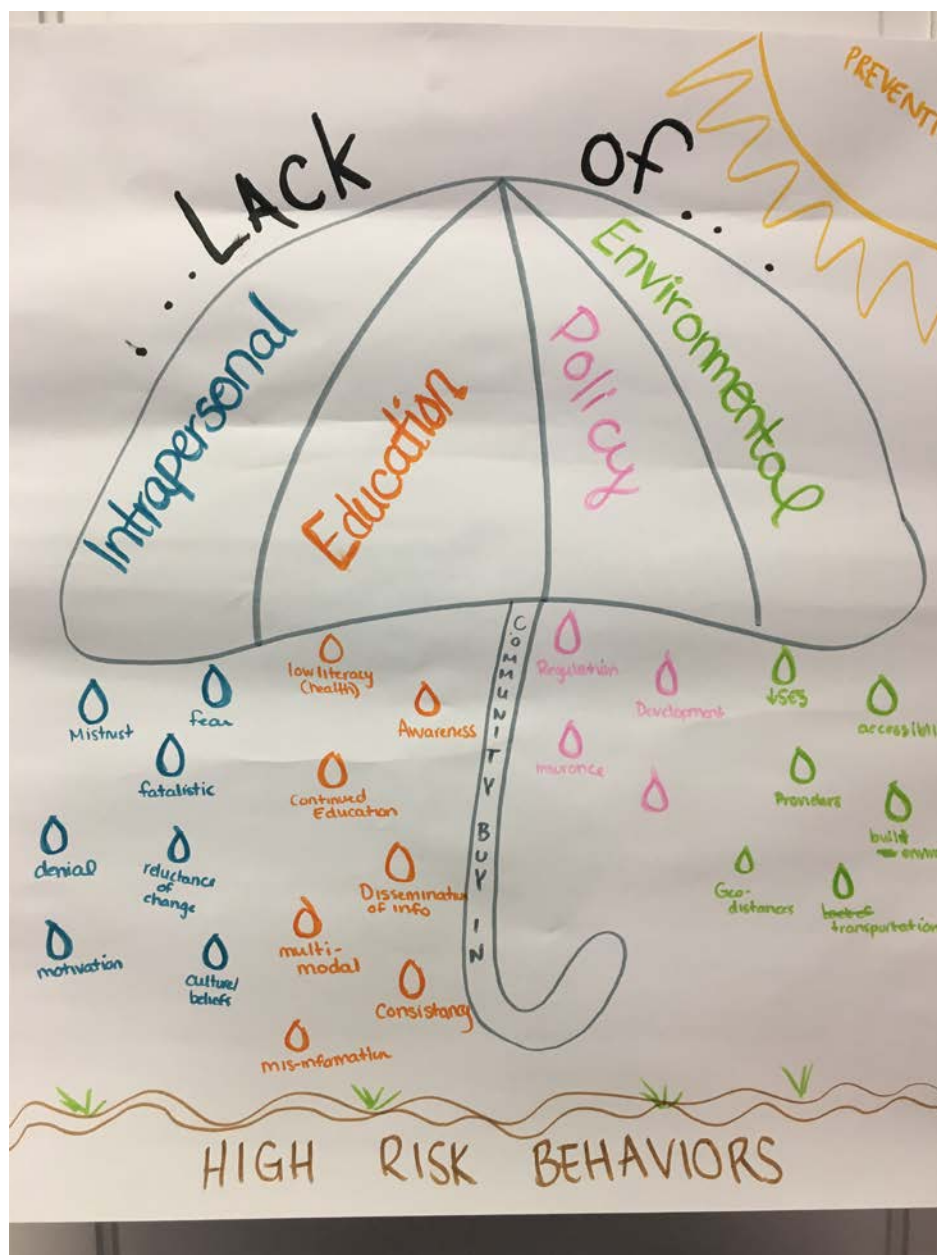 PREVENTI
LACK OF
Intrapersonal
Education
Policy
Environmental
COMMUNITY BUY IN
Mistrust
fear
fatalistic
denial
reluctance
of
change
motivation
culture/
beliefs
low literacy
(health)
Awareness
Continued
Education
Dissemination
of info
multi-
modal
Consistancy
mis-information
Regulation
Development
insurance
↓SES
accessibli
Providers
built
envir
Geo-
distances
lack of
transportation
HIGH RISK BEHAVIORS